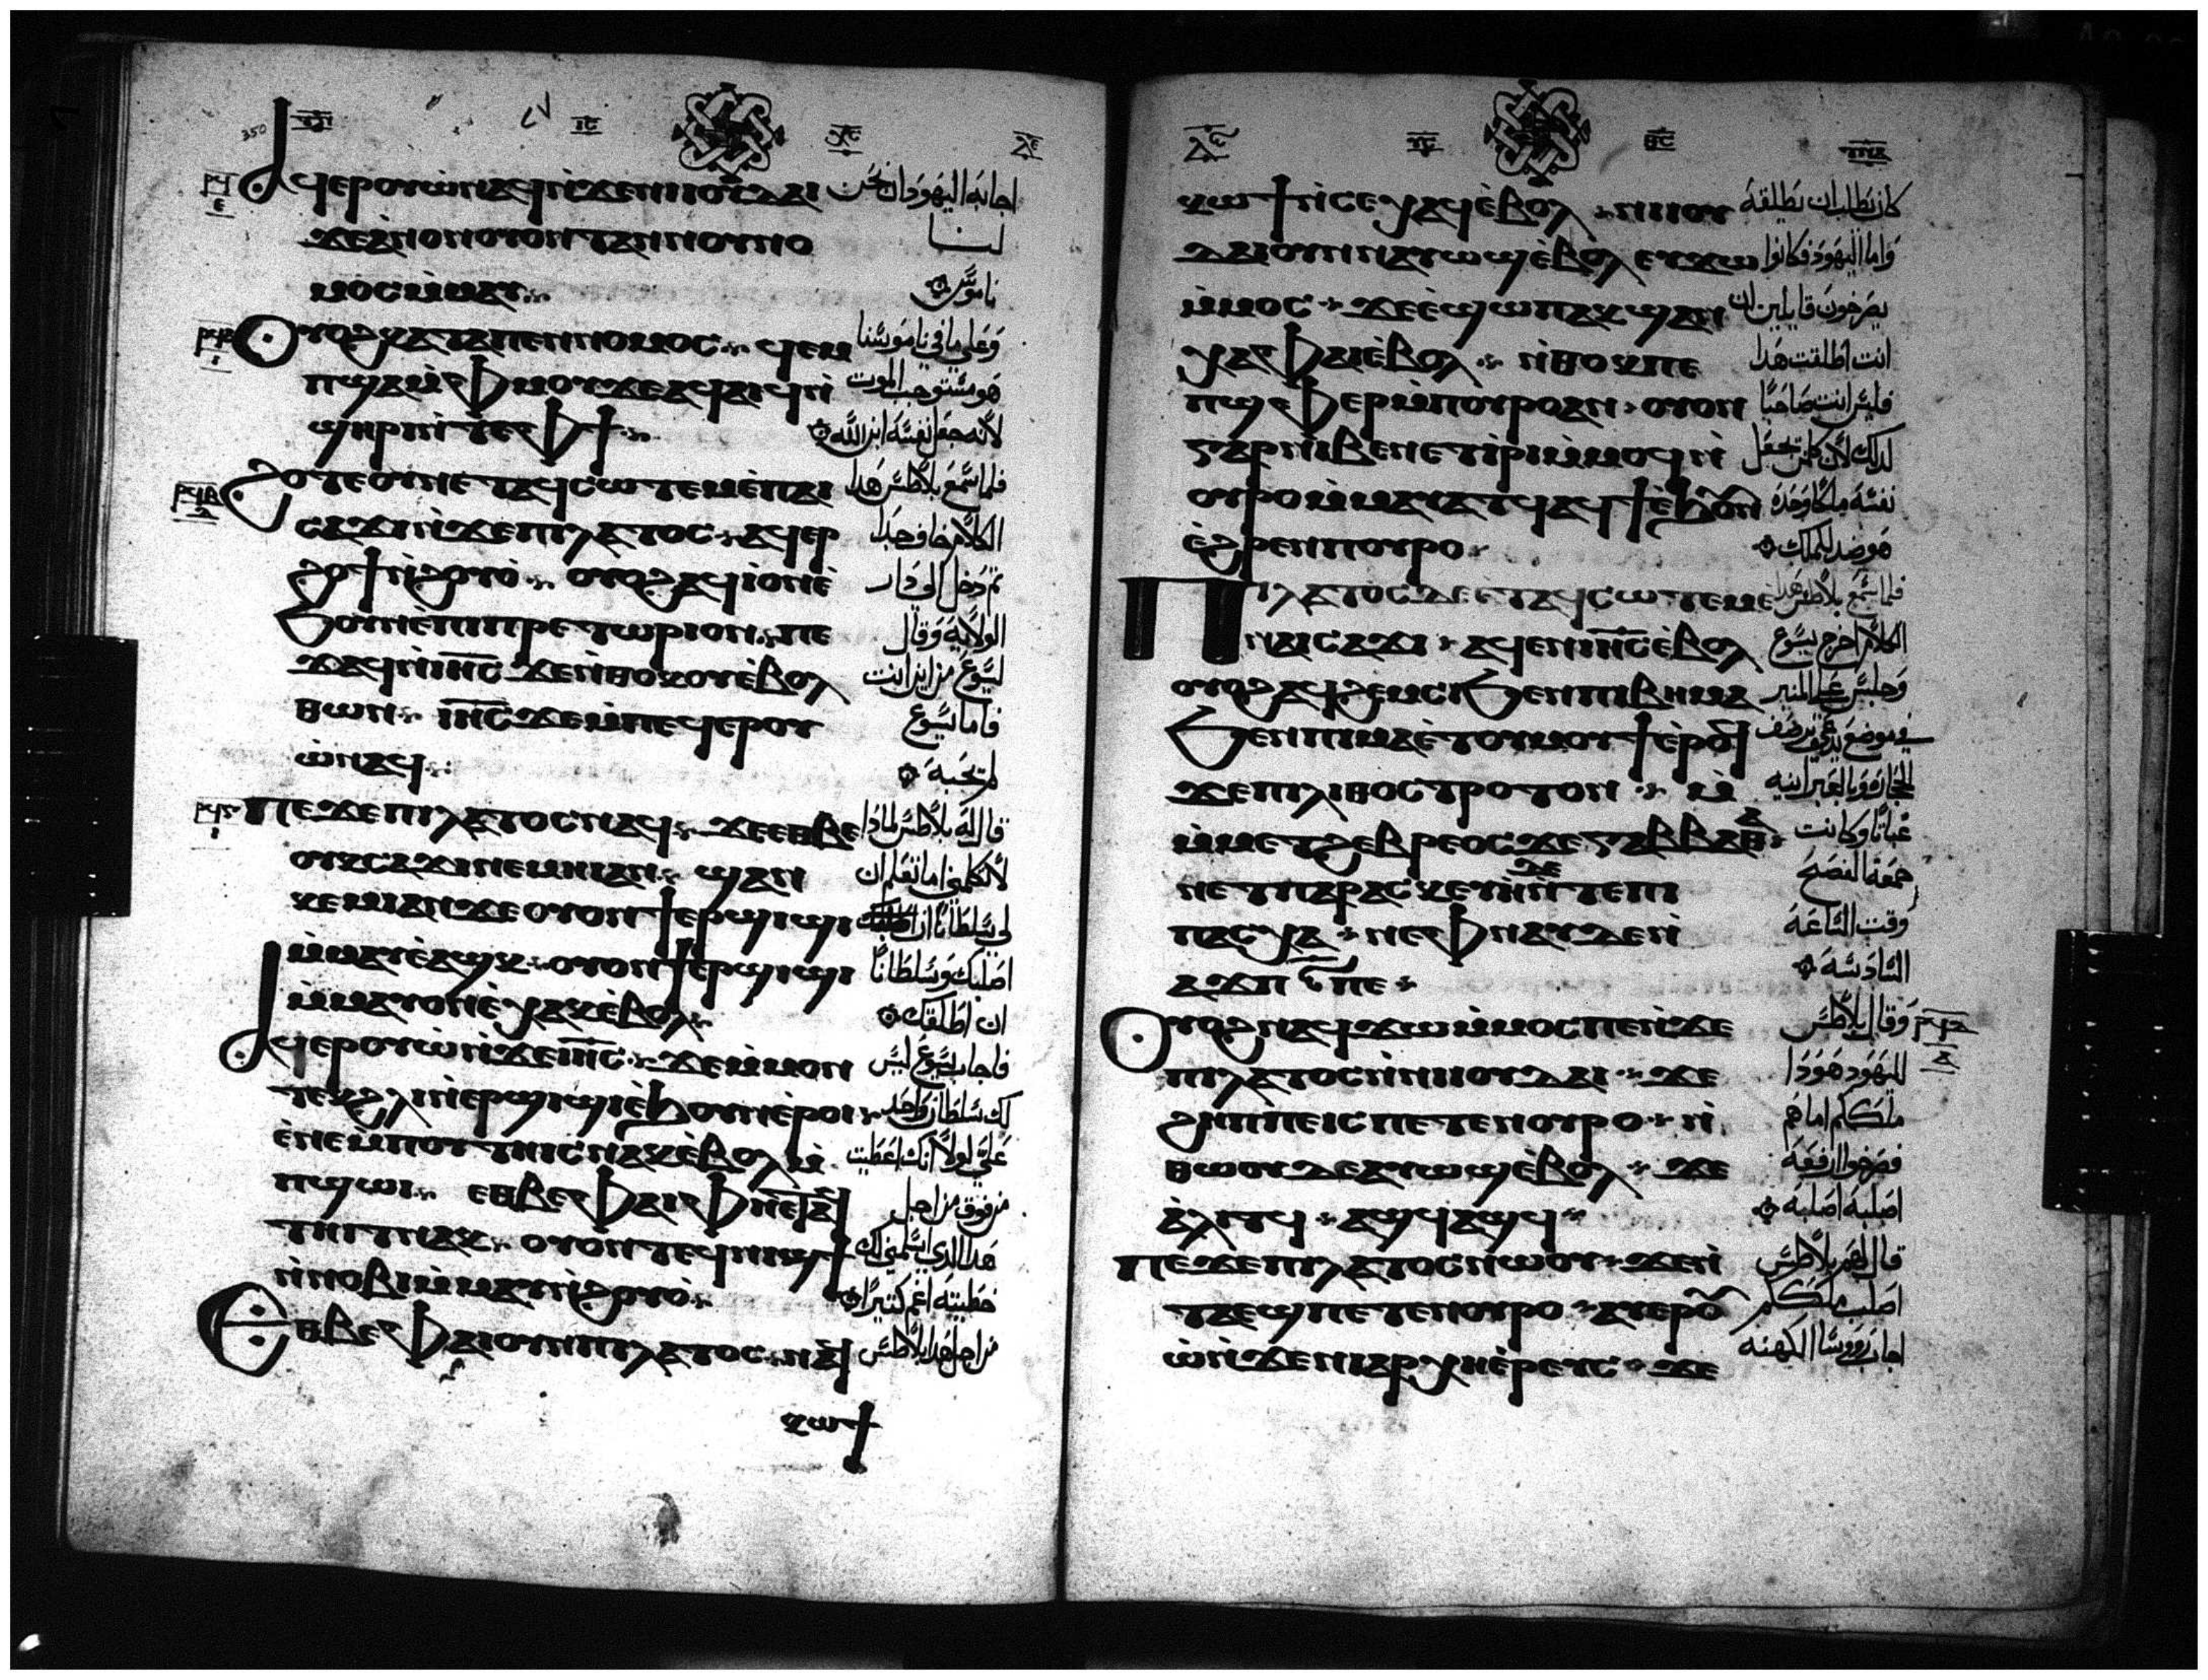 350
ⲁϥⲉⲣⲟⲩⲱ̇ⲛⲁϥⲛ̇ϫⲉⲛⲓⲓⲟⲩⲇⲁⲓ اجابه اليهود ان نحن
ϫⲉⲁⲛⲟⲛⲟⲩⲟⲛⲧⲁⲛⲛⲟⲩⲛⲟ لنا
ⲙⲟⲥⲙ̇ⲙⲁⲩ ناموس
ⲟⲩⲟϩⲕⲁⲧⲁⲡⲉⲛⲛⲟⲙⲟⲥ ϥⲉⲙ وعلي ما في ناموسنا
ⲡϣⲁⲙ̇ⲫⲙⲟⲩϫⲉⲁϥⲁⲓϥⲛ̇ هو مستوجب الموت
ϣⲏⲣⲛ̇ⲧⲉⲫϯ لانه جعل نفسه ابن الله
ϩⲟⲧⲉⲟⲩⲛⲉⲧⲁϥⲥⲱⲧⲉⲙⲉ̇ⲡⲁⲓ فلما سمع بلاطس هدا
ⲥⲁϫⲓⲛ̇ϫⲉⲡⲓⲗⲁⲧⲟⲥ ⲁϥⲉⲣ الكلام خاف جدا
ϩⲟϯⲛ̇ϩⲟⲩⲟ̇ ⲟⲩⲟϩⲁϥⲓⲟⲛⲉ̇ تم دخل الي دار
ϧⲟⲩⲛⲉ̇ⲡⲓⲡⲣⲉⲧⲱⲣⲓⲟⲛ ⲡⲉ الولاية وقال
ϫⲁϥⲛ̇ⲓⲏⲥ ϫⲉⲛ̇ⲑⲟⲕⲟⲩⲉ̇ⲃⲟⲗ ليسوع من اين انت
ⲑⲱⲛ ⲓⲏⲥ ⲇⲉⲙ̇ⲡⲉϥⲉⲣⲟⲩ فاما يسوع
ⲱ̇ⲛⲁϥ لم يجبه
ⲡⲉϫⲉⲡⲓⲗⲁⲧⲟⲥⲛⲁϥ ϫⲉⲉⲑⲃⲉ قال له بلاطس لمادا
ⲟⲩⲕⲥⲁϫⲓⲛⲉⲙⲏⲓⲁⲛ ϣⲁⲛ لا تكلمني اما تعلم ان
ⲕⲉⲙⲓⲁⲛϫⲉⲟⲩⲟⲛϯⲉⲣϣⲓϣⲓ لي سلطانا ان
ⲙ̇ⲙⲁⲩⲉ̇ⲁϣⲕ ⲟⲩⲟⲛϯⲉⲣϣⲓϣⲓ اصلبك وسلطانا
ⲙ̇ⲙⲁⲩⲟⲛⲉ̇ⲭⲁⲕⲉ̇ⲃⲟⲗ ان اطلقك
ⲁϥⲉⲣⲟⲩⲱ̇ⲛ̇ϫⲉⲓⲏⲥ ϫⲉⲙ̇ⲙⲟⲛ فاجاب يسوع ليس
ⲧⲉⲕϩⲗⲓⲛ̇ⲉⲣϣⲓϣⲓⲉ̇ϧⲟⲩⲛⲉ̇ⲣⲟⲓ لك سلطان واحد
ⲉ̇ⲛⲉⲙ̇ⲡⲟⲩⲧⲏⲓⲥⲛⲁⲕⲉ̇ⲃⲟⲗⲙ̇ علي لولا انك اعطيت
ⲡϣⲱⲓ ⲉⲑⲃⲉⲫⲁⲓⲫⲏⲉ̇ⲧⲁϥ من فوق من اجل
ⲧⲏⲓⲧⲛⲁⲕ ⲟⲩⲟⲛⲧⲉϥⲛⲓϣϯ هدا الدي اسلمني لك
ⲛ̇ⲛⲟⲃⲓⲙ̇ⲙⲁⲩⲛ̇ϩⲟⲩⲟ̇ خطيته اعظم كتيرا
ⲉⲑⲃⲉⲫⲁⲓⲟⲩⲛⲡⲓⲗⲁⲧⲟⲥ ⲛⲁϥ من اجل هدا بلاطس
ⲕⲱϯ
ⲕⲱϯⲛ̇ⲥⲉⲭⲁϥⲉ̇ⲃⲟⲗ ⲛⲓⲓⲟⲩ كان يطلب ان يطلقه
ⲇⲁⲓⲟⲩⲛⲛⲁⲩⲱϣⲉ̇ⲃⲟⲗ ⲉⲩϫⲱ واما اليهود فكانوا
ⲙ̇ⲙⲟⲥ ϫⲉⲉ̇ϣⲱⲡⲁⲕϣⲁⲛ يصرخون قايلين ان
ⲭⲁⲫⲁⲓⲉ̇ⲃⲟⲗ ⲛ̇ⲑⲟⲕⲡⲉ انت اطلقت هدا
ⲡϣⲫⲉⲣⲙ̇ⲡⲟⲩⲣⲟⲁⲛ ⲟⲩⲟⲛ فليس انت صاحبا
ⲅⲁⲣⲛⲓⲃⲉⲛⲉⲧⲓ̇ⲣⲓⲙ̇ⲙⲟϥⲛ̇ لدلك لان كلمن يجعل
ⲟⲩⲣⲟⲙ̇ⲙⲁⲩⲁⲧϥ ⲁϥϯⲉ̇ϧⲟⲩⲛ نفسه ملكا وحده
ⲉ̇ϩⲣⲉⲛⲡⲟⲩⲣⲟ هو ضد لملك
ⲡⲓⲗⲁⲧⲟⲥⲇⲉ ⲉⲧⲁϥⲥⲱⲧⲉⲙⲉ فلما سمع بلاطس هدا
ⲛⲁⲓⲥⲁϫⲓ ⲁϥⲉⲛⲓⲏⲥⲉ̇ⲃⲟⲗ الكلام اخرج يسوع
ⲟⲩⲟϩⲁϥϩⲉⲙⲥⲓϩⲓϫⲉⲛⲡⲓⲃⲏⲙⲁ وجلس علي المنبر
ϧⲉⲛⲡⲓⲙⲁⲉ̇ⲧⲟⲩⲙⲟⲩϯⲉ̇ⲣⲟϥ في موضع يدعي رصف
ϫⲉⲡⲓⲗⲓⲑⲟⲥⲧⲣⲟⲧⲟⲛ ⲙ̇ الحجارة وبالعبرانيه
ⲙ̇ⲙⲉⲧϩⲉⲃⲣⲉⲟⲥϫⲉⲅⲁⲃⲃⲁⲑⲁ غباتا وكانت
ⲛⲉⲧⲡⲁⲣⲁⲥⲕⲉⲩⲏⲇⲉ ⲛ̇ⲧⲉⲡⲓ جمعة الفصح
ⲡⲁⲥⲭⲁ ⲛⲉⲫⲛⲁⲩⲇⲉⲛ̇ وقت الساعه
ⲁϫⲡ ⲋ̅ⲡⲉ السادسه
ⲟⲩⲟϩⲛⲁϥϫⲱⲙ̇ⲙⲟⲥⲡⲉⲛ̇ϫⲉ وقال بلاطس
ⲡⲓⲗⲁⲧⲟⲥⲛ̇ⲛⲓⲓⲟⲩⲇⲁⲓ ϫⲉ لليهود هودا
ϩⲏⲡⲡⲉⲓⲥⲡⲉⲧⲉⲛⲟⲩⲣⲟ ⲛ̇ ملككم اما هم
ⲑⲱⲟⲩⲇⲉⲁⲩⲱϣⲉ̇ⲃⲟⲗ ϫⲉ فصرخوا ارفعه
ⲁ̇ⲗⲓⲧϥ ⲁϣϥⲁϣϥ اصلبه اصلبه
ⲡⲉϫⲉⲡⲓⲗⲁⲧⲟⲥⲛⲱⲟⲩ ϫⲉⲛ̇ قال لهم بلاطس
ⲧⲁⲉϣⲡⲉⲧⲉⲛⲟⲩⲣⲟ ⲁⲩⲉⲣⲟⲩ اصلب ملككم
ⲱ̇ⲛ̇ϫⲉⲛⲓⲁⲣⲭⲏⲉ̇ⲣⲉⲩⲥ ϫⲉ اجاب روسا الكهنه